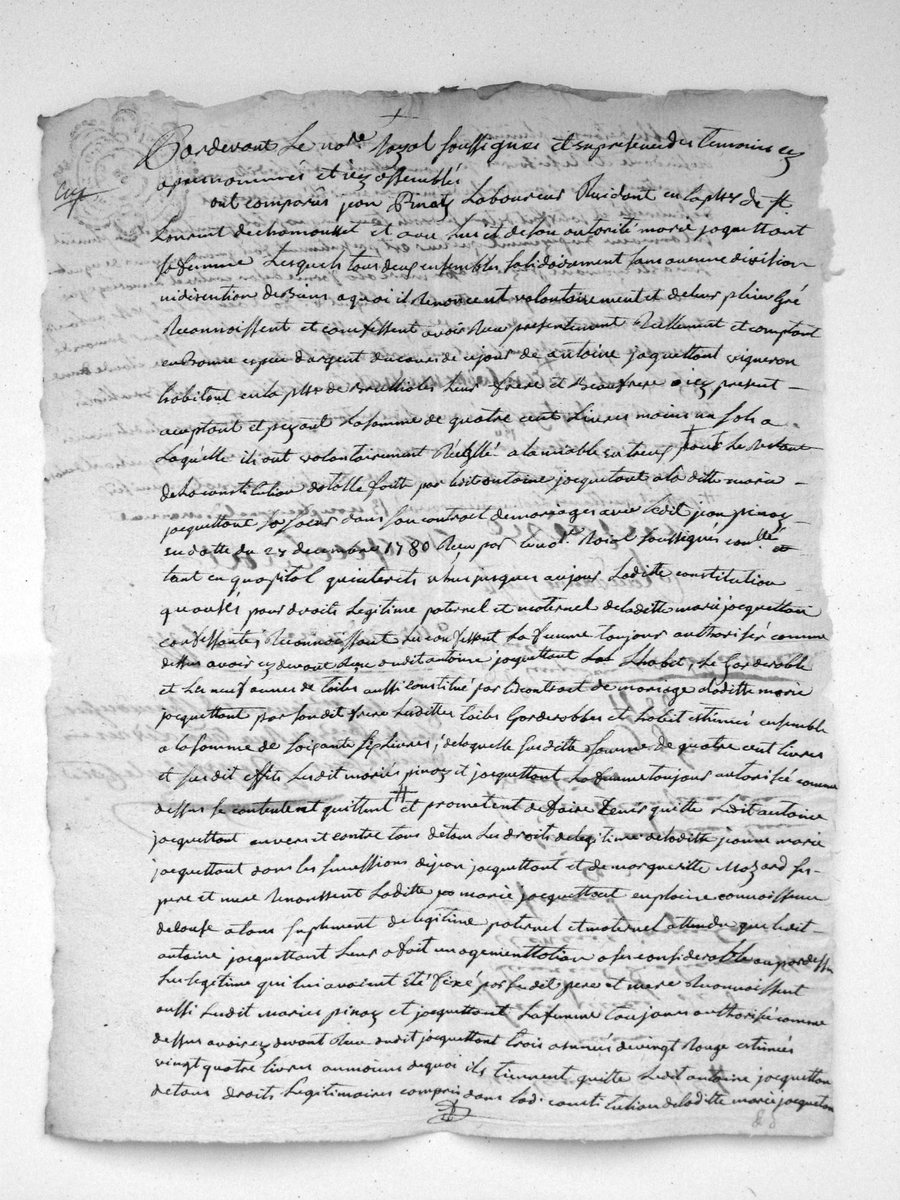 Pardevant Le not.re Royal soussigné et en presence des temoins cy
apres nommés et icy assemblés
Copie
ont comparus jean Pinay Laboureur Residant en la psse de st
Laurent de chamousset et avec luy et de son autorité marie jacquettant
sa femme Lesquels tous deux ensembles solidairement sans aucune division
ni discution de Biens a quoi il Renoncent volontairement et de leur plein Gré
Reconnoissent et confessent avoir Reçu presentement Reellement et comptant
en Bonne espece d'argent du cours de ce jour de antoine jaquettant vigneron
habitant en la psse de Brullioles Leur frere et Beaufrere icy present
acceptant et payant La somme de quatre cent Livres moins un sols a
Laquelle ils ont volontairement Reglé a la miable entreux pour Le Restant
de la constitution dotalle faitte par ledit antoine jacquetant a la ditte marie
jacquettant sa sœur dans son contract de mariage avec Ledit jean pinay
en datte du 27 decembre 1780 Reçu par le not. Roial soussigné
tant en quapital qu'interets echus jusques aujour Laditte constitution
pour droits Legitime paternel et maternel de laditte marie jacquettant
confessants, Reconnoissant La femme toujour authorisée comme
dessus avoir cy devant Reçu dudit antoine jacquettant Lhabit, Le Garderobbe
et Les neuf aunes de toiles aussi constitué par Le contract de mariage de laditte marie
jacquettant par son dit frere Lesdittes toiles Garderobbes et habit estimés ensemble
a la somme de Livres, de laquelle susditte somme de quatre cent livres
et susdit effets Lesdit mariés pinay et jacquettant La femme toujour autorisée comme
dessus se contentent quittent et prometent de faire tenir quitte Ledit antoine
jacquettant envers et contre tous de tous Les droits de legitime de laditte jeanne marie
jacquettant dans les successions de jean jacquettant et de marguerite Mazard ses
pere et mere Renonssent Laditte marie jacquettant en plaine connoissence
de cause a tous suplement de legitime paternel et maternel attendu que ledit
antoine jacquettant Leur a fait une ogmenttation asses considerable au par dessus
Les legitime qui lui avoient été fixé par sesdit pere et mere Reconnoissent
aussi Lesdit mariés pinay et jacquettant La femme toujours authorisée comme
dessus avoir cy devant Reçu dudit jacquettant trois asnées de vin Rouge estimées
vingt quatre livres au moiens de quoi ils tiennent quitte Ledit antoine jacquettant
de tous droits Legitimaires compris dans Ladi. constitution de laditte marie jacquetant